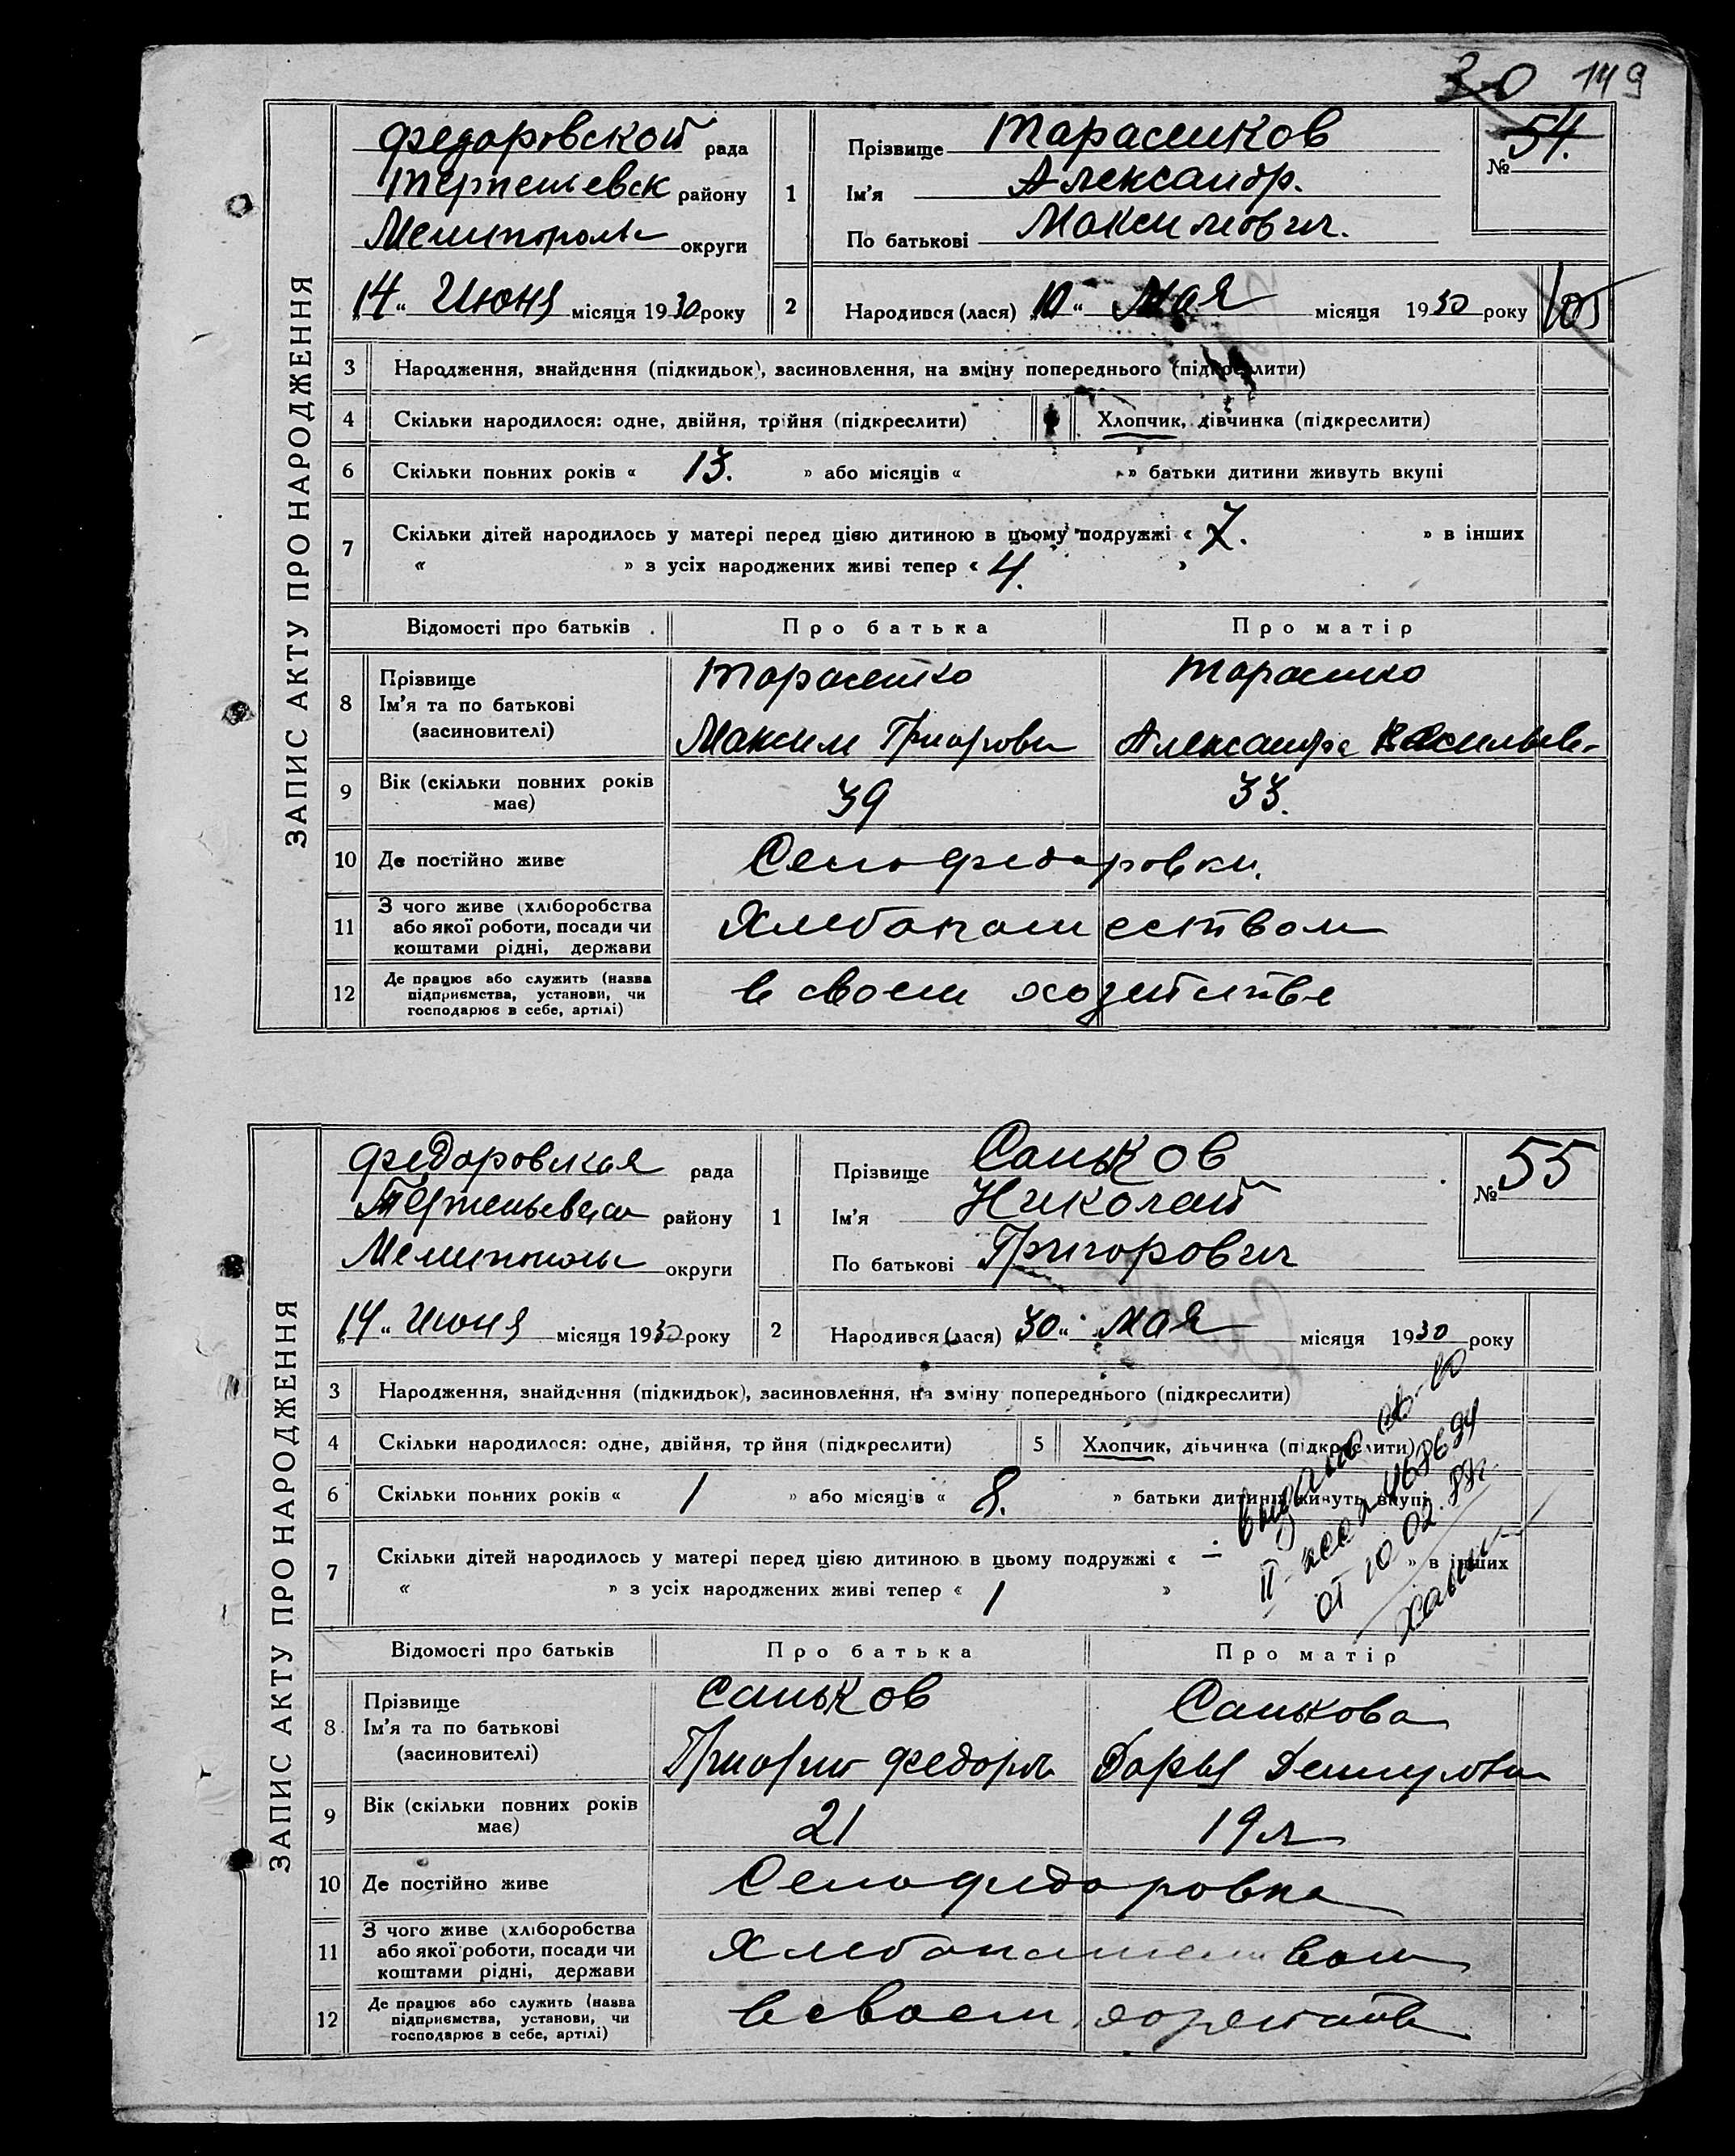 30 149
ЗАПИС АКТУ ПРО НАРОДЖЕННЯ
Федоровской рада
района
округи
14 „ Июня місяця 1930 року
1 Прізвище
Ім'я Александр.
По батькові Максимович.
№ 54.
2 Народився (лася) 10 „ Мая місяця 1930 року
105
3 Народження, знайдення (підкидьок), засиновлення, на зміну попереднього (підкреслити)
4 Скільки народилося: одне, двійня, трійня (підкреслити) Хлопчик, дівчинка (підкреслити)
6 Скільки повних років « 13. » або місяців « » батьки дитини живуть вкупі
7 Скільки дітей народилось у матері перед цією дитиною в цьому подружжі « 7. » в інших
« » з усіх народжених живі тепер « 4. »
Відомості про батьків Про батька Про матір
8 Прізвище
Ім'я та по батькові
(засиновителі)
Максим Григорови Александра
9 Вік (скільки повних років має) 39 33.
10 Де постійно живе Село Федоровки.
11 З чого живе (хліборобства або якої роботи, посади чи коштами рідні, держави Хлебопашеством
12 Де працює або служить (назва підприємства, установи, чи господарює в себе, артілі) в своем хозяйстве
ЗАПИС АКТУ ПРО НАРОДЖЕННЯ
Федоровская рада
району
округи
14 „ Июня місяця 1930 року
1 Прізвище Саньков
Ім'я Николай
По батькові Григорович
№ 55
2 Народився (лася) 30 „ Мая місяця 1930 року
3 Народження, знайдення (підкидьок), засиновлення, на зміну попереднього (підкреслити)
4 Скільки народилося: одне, двійня, трійня (підкреслити) 5 Хлопчик, дівчинка (підкреслити)
6 Скільки повних років « 1 » або місяців « 8. » батьки дитини живуть вкупі
7 Скільки дітей народилось у матері перед цією дитиною в цьому подружжі « — » в інших
« » з усіх народжених живі тепер « 1 »
выдано св-во
от 10 02
Відомості про батьків Про батька Про матір
8 Прізвище Саньков Санькова
Ім'я та по батькові
(засиновителі)
Дарья
9 Вік (скільки повних років має) 21 19 л
10 Де постійно живе Село Федоровка
11 З чого живе (хліборобства або якої роботи, посади чи коштами рідні, держави Хлебопашеством
12 Де працює або служить (назва підприємства, установи, чи господарює в себе, артілі) в своем